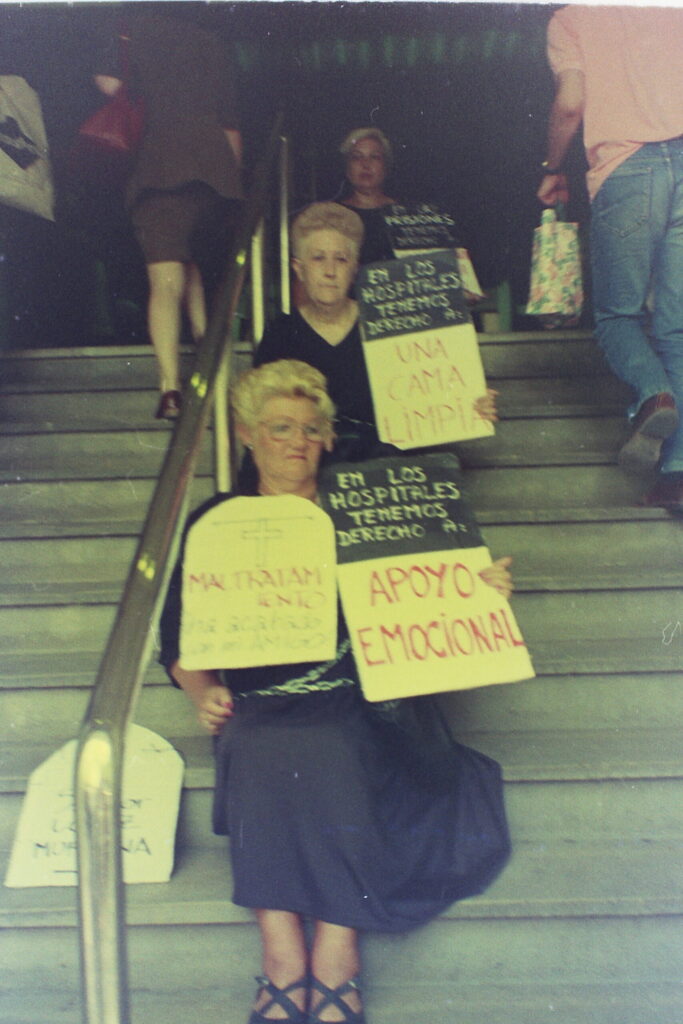 PRISIONES
TENEMOS
DERECHO
EN LOS
HOSPITALES
TENEMOS
DERECHO A:
UNA
CAMA
LIMPIA
EN LOS
HOSPITALES
TENEMOS
DERECHO A:
APOYO
EMOCIONAL
MALTRATAM
IENTO
ha acabado
con mi AMIGO